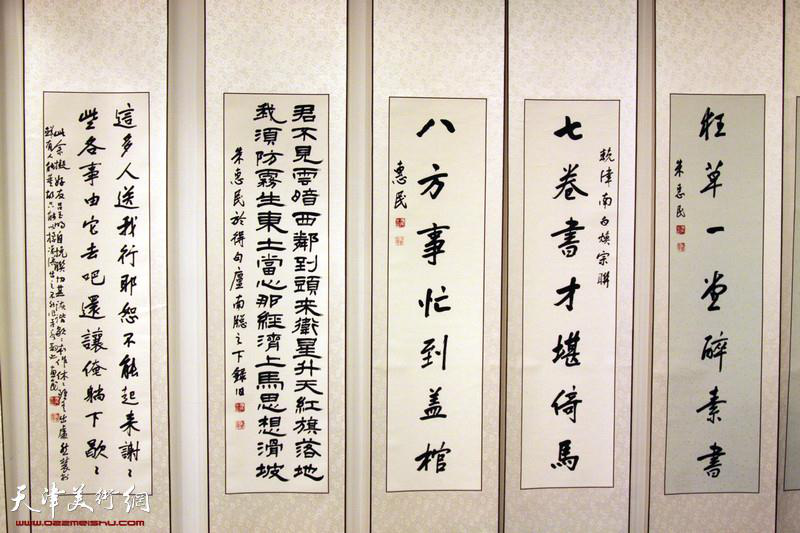 狂草一堂醉素書
朱惠民
輓津南白焕宗聯
七卷書才堪倚馬
八方事忙到盖棺
惠民
君不見雲暗西鄰到頭来衛星升天紅旗落地
我須防霧生東土當心那經濟上馬思想滑坡
朱惠民於得句廬南牕之下録旧
這多人送我行耶恕不能起来謝〻
些各事由它去吧還讓俺躺下歇〻
此余擬好友吕
惠民
天津美術網
www.022meishu.com